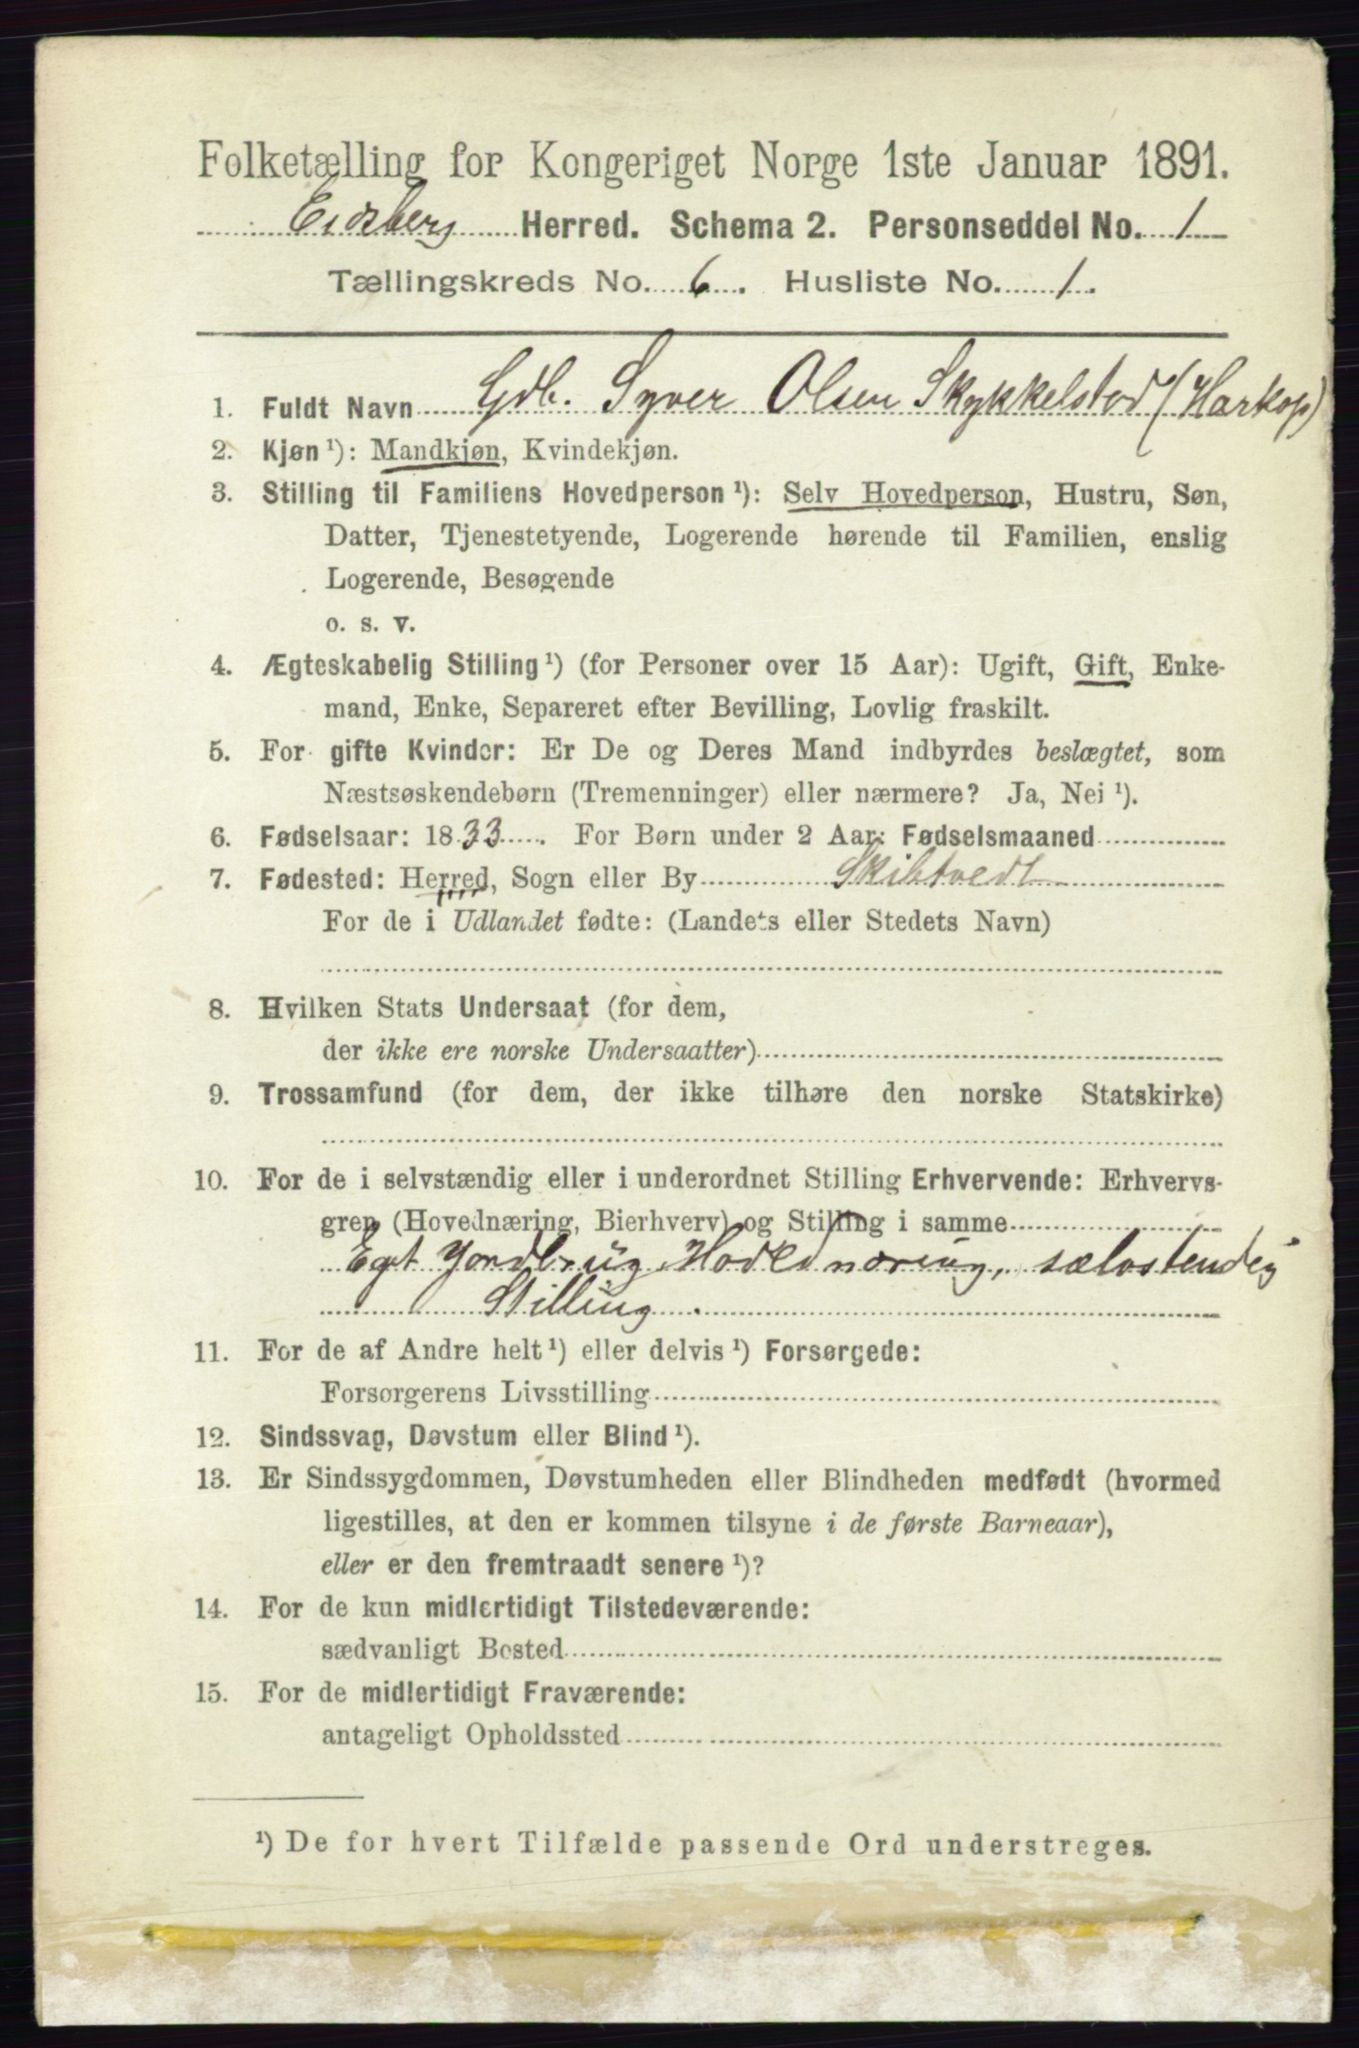 Folketælling for Kongeriget Norge 1ste Januar 1891.
Eidsberg Herred. Schema 2. Personseddel No. 1
Tællingskreds No. 6. Husliste No. 1.
1. Fuldt Navn Gdb. Syver Olsen Skykkelstad (Harkop)
2. Kjøn ¹): Mandkjøn, Kvindekjøn.
3. Stilling til Familiens Hovedperson ¹): Selv Hovedperson, Hustru, Søn,
Datter, Tjenestetyende, Logerende hørende til Familien, enslig
Logerende, Besøgende
o. s. v.
4. Ægteskabelig Stilling ¹) (for Personer over 15 Aar): Ugift, Gift, Enke-
mand, Enke, Separeret efter Bevilling, Lovlig fraskilt.
5. For gifte Kvinder: Er De og Deres Mand indbyrdes beslægtet, som
Næstsøskendebørn (Tremenninger) eller nærmere? Ja, Nei ¹).
6. Fødselsaar: 1833. For Børn under 2 Aar: Fødselsmaaned
7. Fødested: Herred, Sogn eller By Skibtvedt
For de i Udlandet fødte: (Landets eller Stedets Navn)
8. Hvilken Stats Undersaat (for dem,
der ikke ere norske Undersaatter)
9. Trossamfund (for dem, der ikke tilhøre den norske Statskirke)
10. For de i selvstændig eller i underordnet Stilling Erhvervende: Erhvervs-
gren (Hovednæring, Bierhverv) og Stilling i samme
Eget Jordbrug Hovednæring, sælvstendig
Stilling.
11. For de af Andre helt ¹) eller delvis ¹) Forsørgede:
Forsørgerens Livsstilling
12. Sindssvag, Døvstum eller Blind ¹).
13. Er Sindssygdommen, Døvstumheden eller Blindheden medfødt (hvormed
ligestilles, at den er kommen tilsyne i de første Barneaar),
eller er den fremtraadt senere ¹)?
14. For de kun midlertidigt Tilstedeværende:
sædvanligt Bosted
15. For de midlertidigt Fraværende:
antageligt Opholdssted
¹) De for hvert Tilfælde passende Ord understreges.